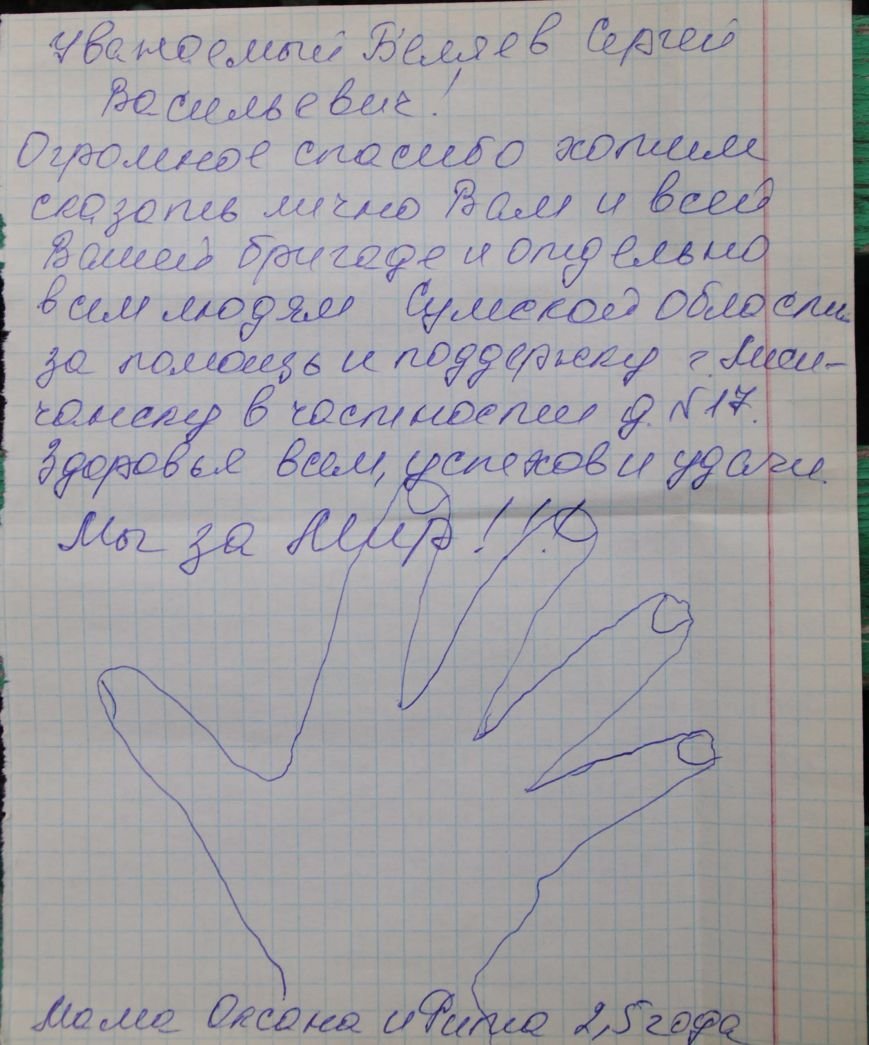 Уважаемый Беляев Сергей
Васильевич!
Огромное спасибо хотим
сказать лично Вам и всей
Вашей бригаде и отдельно
всем людям Сумской области
за помощь и поддержку г. Лиси-
чанску в частности д. №17.
Здоровья всем, успехов и удачи.
Мы за Мир!!!
Мама Оксана и Рита 2,5 года